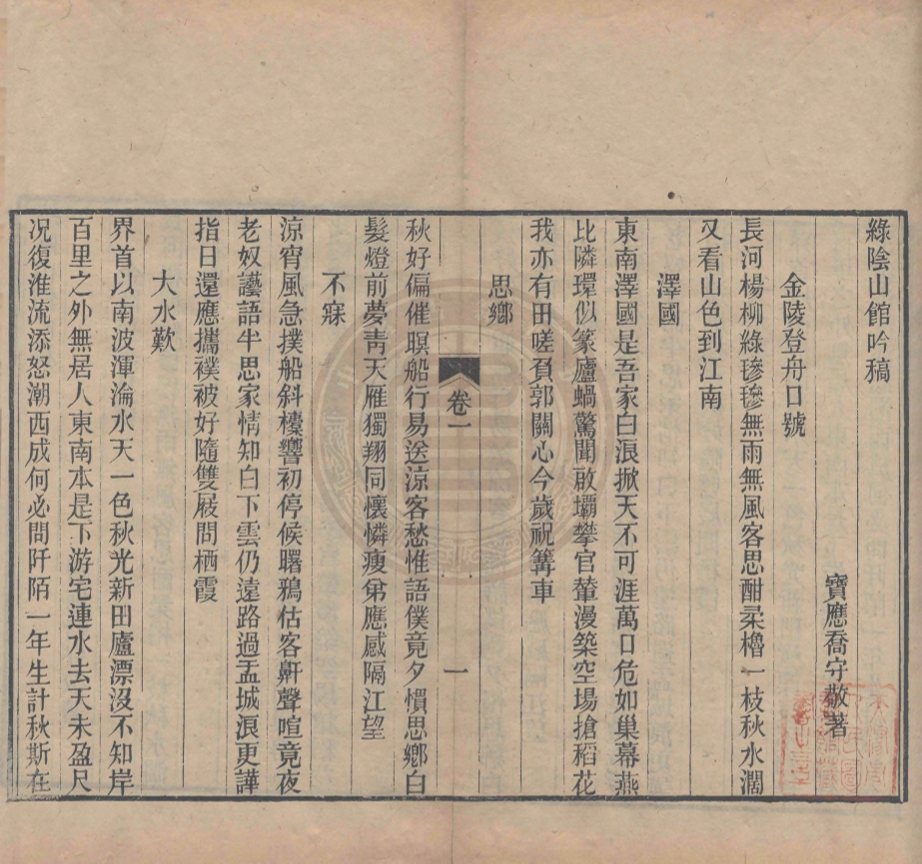 綠陰山館吟稿
寶應喬守敬著
金陵登舟口號
長河楊柳綠毿毿無雨無風客思酣柔櫓一枝秋水濶
又看山色到江南
澤國
東南澤國是吾家白浪掀天不可涯萬口危如巢幕燕
比隣環似篆廬蝸驚聞敢壩攀官輦漫築空場搶稻花
我亦有田嗟負郭關心今歲祝篝車
思鄉
秋好偏催暝船行易送涼客愁惟語僕竟夕慣思鄉白
髮燈前夢靑天雁獨翔同懷憐瘦弟應感隔江望
卷一
一
不寐
涼宵風急撲船斜櫓響初停候曙鴉估客鼾聲喧竟夜
老奴讛語半思家情知白下雲仍遠路過盂城浪更譁
指日還應攜襆被好隨雙屐問栖霞
大水歎
界首以南波渾淪水天一色秋光新田廬漂沒不知岸
百里之外無居人東南本是下游宅連水去天未盈尺
況復淮流添怒潮西成何必問阡陌一年生計秋斯在